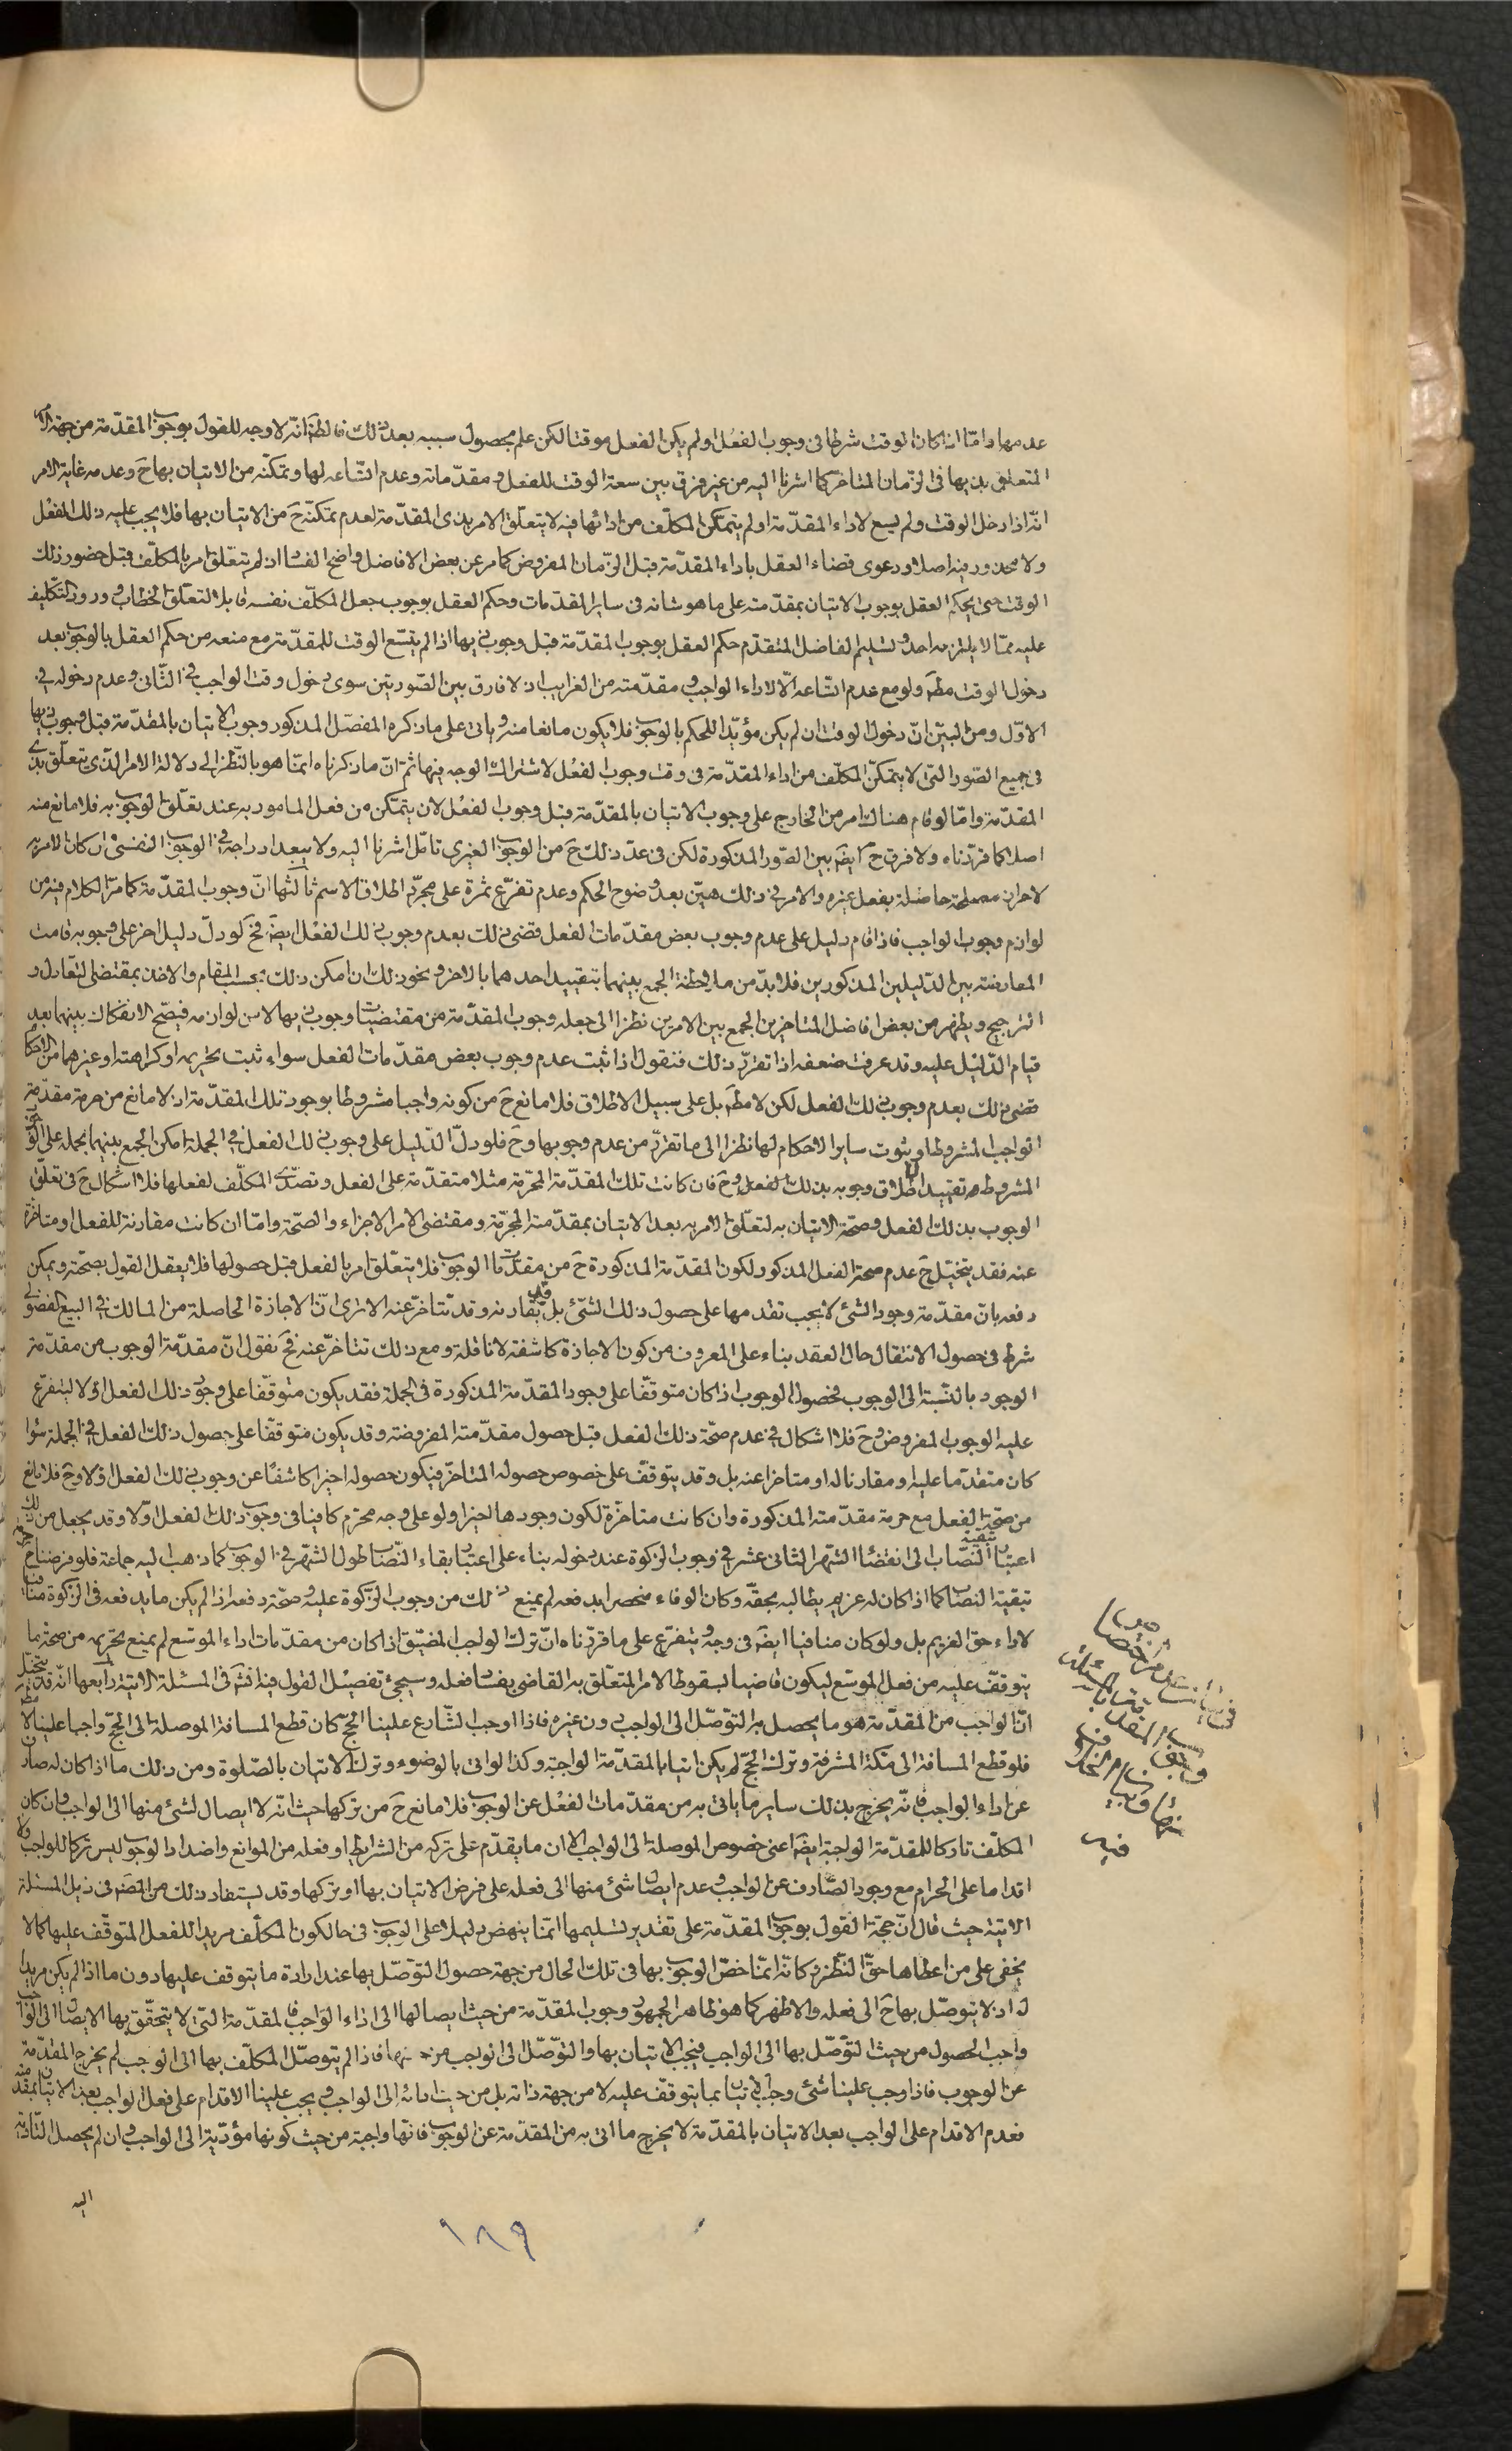 عدمها وامّا اذا كان الوقت شرطا فى وجوب الفعل ولم يكن الفعل موقتا لكن علم بحصول سببه بعد ذلك فالظ انّه لا وجه للقول بوجوب المقدّمة من جهة الامر
المتعلق بذيها فى الزّمان المتاخّر كما اشرنا اليه من غير فرق بين سعة الوقت للفعل ومقدّماته وعدم اتّساعه لها وتمكّنه من الاتيان بها ح وعدمه غاية الامر
انّه اذا دخل الوقت ولم يسع لاداء المقدّمة او لم يتمكّن المكلّف من ادائها فيه لا يتعلّق الامر بذى المقدّمة لعدم تمكنّه ح من الاتيان بها فلا يجب عليه ذلك الفعل
ولا محذور فيه اصلا ودعوى قضاء العقل باداء المقدّمة قبل الزّمان المفروض كما مر عن بعض الافاضل واضح الفساد اذ لم تتعلّق امر بالمكلّف قبل حضور ذلك
الوقت حتى يحكم العقل بوجوب الاتيان بمقدّمته على ما هو شانه فى ساير المقدّمات وحكم العقل بوجوب جعل المكلّف نفسه قابلا لتعلّق الخطاب وورود التكليف
عليه ممّا لا يلتزمه احد وتسليم الفاضل المتقدّم حكم العقل بوجوب المقدّمة قبل وجوب ذيها اذا لم يتّسع الوقت للمقدّمة مع منعه من حكم العقل بالوجوب بعد
دخول الوقت مطم ولو مع عدم اتّساعه الّا لاداء الواجب ومقدّمته من الغرايب اذ لا فارق بين الصّورتين سوى دخول وقت الواجب فى الثّانى وعدم دخوله فى
الاوّل ومن البيّن انّ دخول الوقت ان لم يكن مؤيّدا للحكم بالوجوب فلا يكون مانعا منه وياتى على ما ذكره المفصّل المذكور وجوب الاتيان بالمقدّمة قبل وجوب ذيها
فى جميع الصّور الّتى لا يتمكّن المكلّف من اداء المقدّمة فى وقت وجوب الفعل لاشتراك الوجه فيها ثم انّ ما ذكرناه انمّا هو بالنّظر الى دلالة الامر الّذى يتعلّق بذى
المقدّمة وامّا لو قام هناك امر من الخارج على وجوب الاتيان بالمقدّمة قبل وجوب الفعل لان يتمّكن من فعل المامور به عند تعلّق الوجوب به فلا مانع منه
اصلا كما قرّرناه ولا فرق ح ايض بين الصّور المذكورة لكن فى عدّ ذلك ح من الوجوب الغيرى تامّل اشرنا اليه ولا يبعد ادراجه فى الوجوب النفسى وان كان الامر به
لاحراز مصلحة حاصلة بفعل غيره والامر فى ذلك هيّن بعد وضوح الحكم وعدم تفرّع ثمرة على مجرّد اطلاق الاسم ثالثها انّ وجوب المقدّمة كما مرّ الكلام فيه من
لوازم وجوب الواجب فاذا قام دليل على عدم وجوب بعض مقدّمات الفعل قضى ذلك بعدم وجوب ذلك الفعل ايض فح لو دلّ دليل اخر على وجوبه قامت
المعارضة بين الدّليلين المذكورين فلا بدّ من ملاحظة الجمع بينهما بتقييد احدهما بالاخر ونحو ذلك ان امكن ذلك بحسب المقام والاخذ بمقتضى التّعادل و
التّرجيح ويظهر من بعض افاضل المتاخرين الجمع بين الامرين نظرا الى جعله وجوب المقدّمة من مقتضيات وجوب ذيها لا من لوازمه فيصّح الانفكاك بينهما بعد
قيام الدّليل عليه وقد عرفت ضعفه اذا تقرّر ذلك فنقول اذا ثبت عدم وجوب بعض مقدّمات الفعل سواء ثبت تحريمه او كراهته او غيرهما من الاحكام
قضى ذلك بعدم وجوب ذلك الفعل لكن لا مطم بل على سبيل الاطلاق فلا مانع ح من كونه واجبا مشروطا بوجود تلك المقدّمة اذ لا مانع من حرمة مقدّمة
الواجب المشروط او ثبوت ساير الاحكام لها نظرا الى ما تقرّر من عدم وجوبها وح فلو دلّ الدّليل على وجوب ذلك الفعل فى الجملة امكن الجمع بينهما بحمله على الوجوب
المشروط وتقييد اطلاق وجوبه بذلك الفعل وح فان كانت تلك المقدّمة المحرّمة مثلا متقدّمة على الفعل وتصدّى المكلّف لفعلها فلا اشكال ح فى تعلّق
الوجوب بذلك الفعل وصحّة الاتيان به لتعلّق الامر به بعد الاتيان بمقدّمته المحرّمة ومقتضى الامر الاجزاء والصّحّة وامّا ان كانت مقارنة للفعل او متاخرة
عنه فقد يتخيّل ح عدم صحة الفعل المذكور لكون المقدّمة المذكورة ح من مقدّمات الوجوب فلا يتعلّق امر بالفعل قبل حصولها فلا يعقل القول بصحّته ويمكن
دفعه بانّ مقدّمة وجود الشئ لا يجب تقدمها على حصول ذلك الشّئ بل قد يقارنه وقد تتاخّر عنه الا ترى انّ الاجازة الحاصلة من المالك فى البيع الفضولى
شرط فى حصول الانتقال حال العقد بناء على المعروف من كون الاجازة كاشفة لا ناقلة ومع ذلك تتاخّر عنه فح نقول انّ مقدّمة الوجوب من مقدّمة
الوجود بالنّسبة الى الوجوب فحصول الوجوب اذا كان متوقّفا على وجود المقدّمة المذكورة فى الجملة فقد يكون متوقّفا على وجود ذلك الفعل اوّلا ليتفرّع
عليه الوجوب المفروض وح فلا اشكال فى عدم صحّة ذلك الفعل قبل حصول مقدّمته المفروضة وقد يكون متوقّفا على حصول ذلك الفعل فى الجملة سواء
كان متقدّما عليه او مقارنا له او متاخرا عنه بل وقد يتوقّف على خصوص حصوله المتاخّر فيكون حصوله اخيرا كاشفا عن وجوب ذلك الفعل اوّلا وح فلا مانع
من صحّة الفعل مع حرمة مقدّمته المذكورة وان كانت متاخرة لكون وجودها اخيرا ولو على وجه محرّم كافيا فى وجوب ذلك الفعل اوّلا وقد يجعل من ذلك
اعتبار تبقية النّصاب الى انقضاء الشّهر الثّانى عشر فى وجوب الزّكوة عند دخوله بناء على اعتبار بقاء النّصاب طول الشّهر فى الوجوب كما ذهب اليه جماعة فلو فرضنا حرمة
تبقية النصاب كما اذا كان له غريم يطالبه بحقّه وكان الوفاء منحصرا بدفعه لم يمنع ذلك من وجوب الزّكوة عليه وصحّة دفعه اذا لم يكن ما يدفعه فى الزّكوة منافيا
لاداء حق الغريم بل ولو كان منافيا ايض فى وجه يتفرّع على ما قرّرناه انّ ترك الواجب المضيّق اذا كان من مقدّمات اداء الموسّع لم يمنع تحريمه من صحة ما
يتوقّف عليه من فعل الموسّع ليكون قاضيا بسقوط الامر المتعلّق به القاضى بفساد فعله وسيجئ تفصيل القول فيه انش فى المسئلة الاتية رابعها انّه قد يتخيّل
انّ الواجب من المقدّمة هو ما يحصل به التوصّل الى الواجب دون غيره فاذا اوجب الشّارع علينا الحجّ كان قطع المسافة الموصلة الى الحجّ واجبا علينا لا مطم
فلو قطع المسافة الى مكّة المشرفة وترك الحجّ لم يكن اتيا بالمقدّمة الواجبة وكذا لو اتى بالوضوء وترك الاتيان بالصّلوة ومن ذلك ما اذا كان له صارف
عن اداء الواجب فانّه يخرج بذلك ساير ما ياتى به من مقدّمات الفعل عن الوجوب فلا مانع ح من تركها حيث انّه لا ايصال لشئ منها الى الواجب وان كان
المكلّف تاركا للمقدّمة الواجبة ايضا اعنى خصوص الموصلة الى الواجب الا ان ما يقدّم على تركه من الشرايط او فعله من الموانع واضداد الوجوب ليس تركا للواجب ولا
اقداما على الحرام مع وجود الصّارف عن الواجب وعدم ايصال شئ منها الى فعله على فرض الاتيان بها او تركها وقد يستفاد ذلك من المض فى ذيل المسئلة
الاتية حيث قال انّ حجّة القول بوجوب المقدّمة على تقدير تسليمها انمّا ينهض دليلا على الوجوب فى حال كون المكلّف مريدا للفعل المتوقّف عليها كما لا
يخفى على من اعطاها حقّ النّظر وكانّه انمّا خصّ الوجوب بها فى تلك الحال من جهة حصول التوصّل بها عند ارادة ما يتوقف عليها دون ما اذا لم يكن مريدا
له اذ لا يتوصّل بها ح الى فعله والاظهر كما هو ظاهر الجمهور وجوب المقدّمة من حيث ايصالها الى اداء الواجب فالمقدّمة الّتى لا يتحقّق بها الايصال الى الواجب
واجب الحصول من حيث التّوصّل بها الى الواجب فيجب الاتيان بها والتّوصّل الى الواجب من فاذا لم يتوصّل المكلّف بها الى الواجب لم يخرج المقدّمة
عن الوجوب فاذا وجب علينا شئ وجب الاتيان بما يتوقّف عليه لا من جهة ذاته بل من حيث ادائه الى الواجب ويجب علينا الاقدام على فعل الواجب بعد الاتيان بمقدّمته
فعدم الاقدام على الواجب بعد الاتيان بالمقدّمة لا يخرج ما اتى به من المقدّمة عن الوجوب فانّها واجبة من حيث كونها مؤدّية الى الواجب وان لم يحصل التأدية
اليه
١٨٩